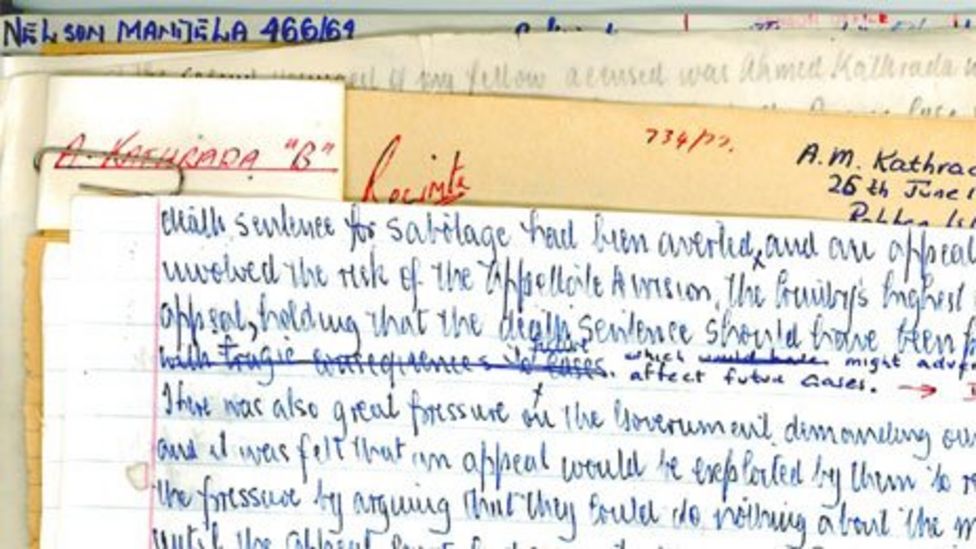 NELSON MANDELA 466/64
of my fellow accused was Ahmed Kathrada
A. KATHRADA "B"
734/77.
A.M. Kathrad
26 th June
death sentence for sabotage had been averted, and an appeal
involved the risk of the Appellate Division, the Country's highest
appeal, holding that the death sentence should have been
with tragic consequences to future cases. which would have might adve
affect future cases. →
There was also great pressure on the Government demanding ou
and it was felt that an appeal would be exploited by them to r
the pressure by arguing that they could do nothing about the m
until the appeal